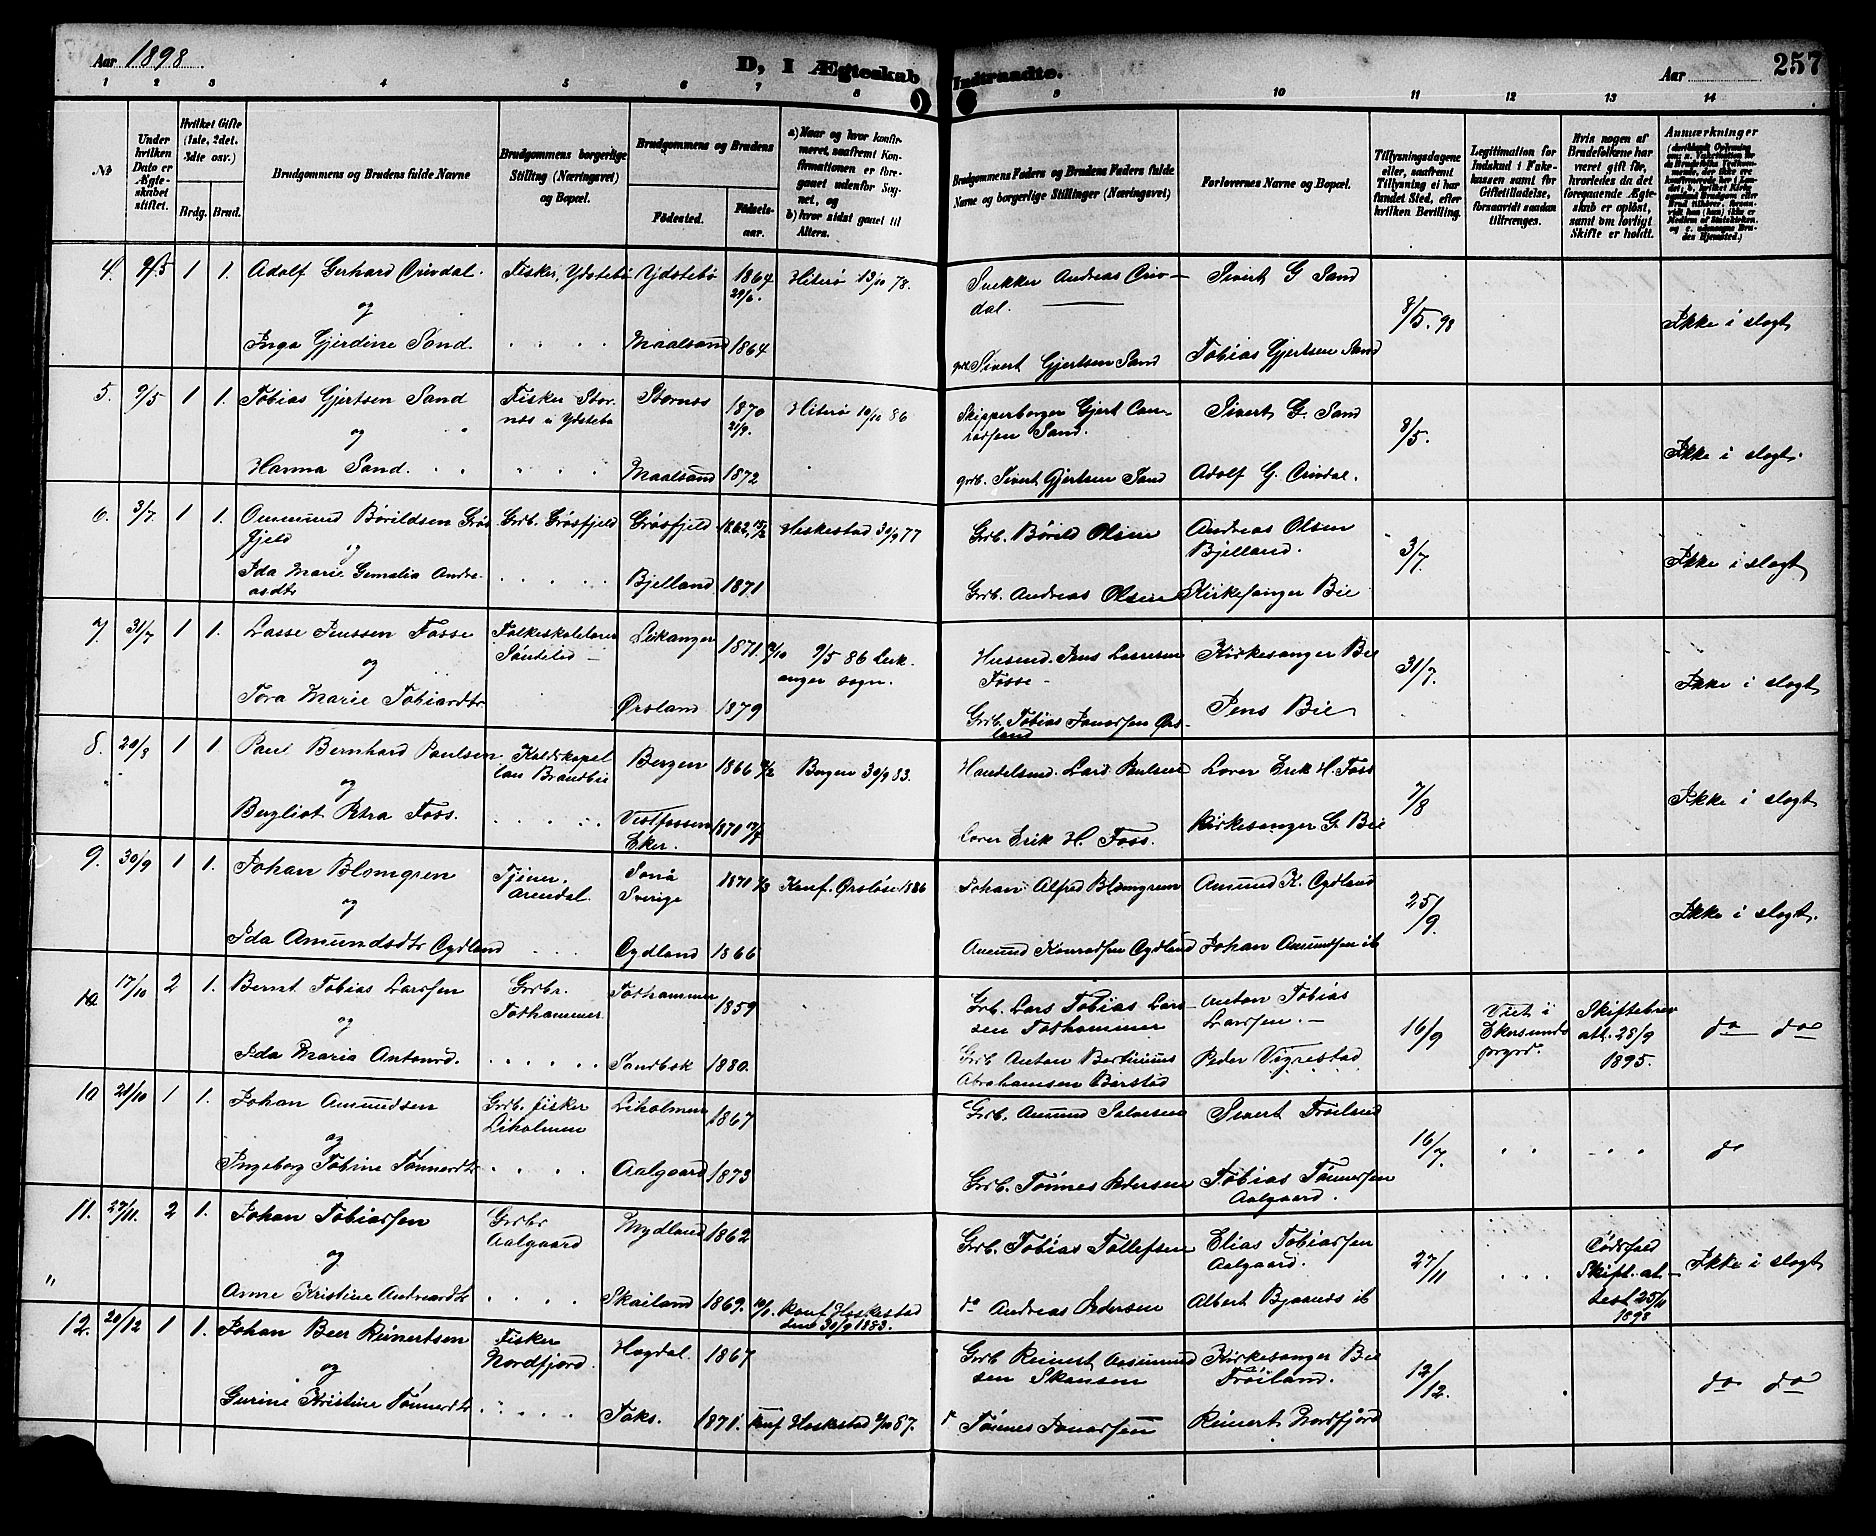 Aar 1898
D, I Ægteskab Indtraadte.
Aar
257
1 2 3 4 5 6 7 8 9 10 11 12 13 14
No
Under hvilken Dato er Ægteskabet stiftet.
Hvilket Gifte (1ste, 2det, 3die osv.)
Brdg. Brud.
Brudgommens og Brudens fulde Navne
Brudgommens borgerlige Stilling (Næringsvei) og Bopæl.
Brudgommens og Brudens
Fødested. Fødselsaar.
a) Naar og hvor konfirmeret, saafremt Konfirmationen er foregaaet udenfor Sognet, og
b) hvor sidst gaaet til Alters.
Brudgommens Faders og Brudens Faders fulde Navne og borgerlige Stillinger (Næringsvei)
Forlovernes Navne og Bopæl.
Tillysningsdagene eller, saafremt Tillysning ei har fundet Sted, efter hvilken Bevilling.
Legitimation for Indskud i Fakkassen samt for Giftetilladelse, forsaavidt saadan tiltrænges.
Hvis nogen af Brudefolkene har været gift før, hvorledes da det foregaaende Ægteskab er opløst, samt om lovligt Skifte er holdt.
Anmærkninger
4. 9/5 1 1. Adolf Gerhard Omdal. Fisker, Ydstebø Ydstebø 1864 29/6. Hiterø 13/10 78. Snekker Andreas Omdal. Sivert G Sand 8/5. 98 Ikke i slegt
og
Inga Gjerdine Sand. Maalsund 1864 Sivert Gjertsen Sand Tobias Gjertsen Sand
5. 9/5 1 1. Tobias Gjertsen Sand Fisker Stornes i Ydstebø Stornes 1870 21/9. Hiterø 10/10 86 Skipperborger Gjert Sand. Sivert G. Sand 8/5. Ikke i slegt.
og
Hanna Sand. Maalsund 1872 Sivert Gjertsen Sand Adolf G. Omdal.
6. 3/7 1 1. Ommund Børildsen Grøsfjeld Grb. Grøsfjeld Grøsfjeld 1862, Heskestad 30/9 77 Grb. Børild Olsen Andreas Olsen Bjelland. 3/7 Ikke i slegt
og
Ida Marie Gemalia Andreasdtr Bjelland 1871 Grb. Andreas Olsen Kirkesanger Bie
7. 31/7 1 1. Lasse Jenssen Fosse Folkeskolelærer Leikanger 1871. 9/5 86 Leikanger sogn. Husmd. Jens Lassesen Fosse - Kirkesanger Bie 31/7. Ikke i slegt
og
Tora Marie Tobiasdtr Ørsland 1879 Grb. Tobias Jonassen Ørsland Jens Bie
8. 20/8 1 1 Paul Bernhard Paulsen Bergen 1866 Bergen 30/9 83. Handelsmd. Lars Paulsen Lærer Erik H. Foss 7/8 Ikke i slegt
og
Bergliot Petra Foss. Vestfossen Eker. 1870 Lærer Erik H. Foss. Kirkesanger G. Bie
9. 30/9 1 1. Johan Blomgren Tjener. Arendal. Sverige 1871 Konf. 1886 Johan Alfred Blomgren Amund K. Eydland 25/9. Ikke i slegt.
og
Ida Amundsdtr Eydland Eydland 1866 Amund Konradsen Eydland Johan Amundsen ib
10 17/10 2 1. Bernt Tobias Larssen Grbr. Tothammer Tothammer 1859 Grb. Lars Tobias Larssen Tothammer Anton Tobias Larssen. - 16/9 Viet i Ekersunds prgrd. Skiftebrev att. 28/9 1895. do do
og
Ida Maria Antonsd. Sandbæk 1880. Grb. Anton Bertinius Abrahamsen Berstad Peder Vigrestad
10 21/10 1 1. Johan Amundsen Grb. fisker Liholmen Liholmen 1867 Grb. Amund Salvesen Sivert Frøiland 16/7. do
og
Ingeborg Tobine Tønnesdtr Aalgaard 1873 Grb. Tønnes Pedersen Tobias Tønnessen Aalgaard.
11. 27/11. 2 1. Johan Tobiassen Grbr Aalgaard Mydland 1862 Grb. Tobias Tollefsen Elias Tobiassen Aalgaard. 27/11 Dødsfald Skift. attest 25/11 1898 Ikke i slegt
og
" Anne Kristine Andreasdtr Skailand 1869. Konf. Heskestad den 30/9 1883. do Andreas Pedersen Albert Bjaanes ib
12. 29/12 1 1. Johan Beer Reinertsen Fisker Nordfjord. Hogdal. 1867 Grb Reinert Aasmundsen Skansen Kirkesanger Bie Frøiland. 12/12. do do
og
Gurine Kristine Tønnesdtr Taks. 1871. Konf Heskestad 87. Tønnes Jonassen Reinert Nordfjord